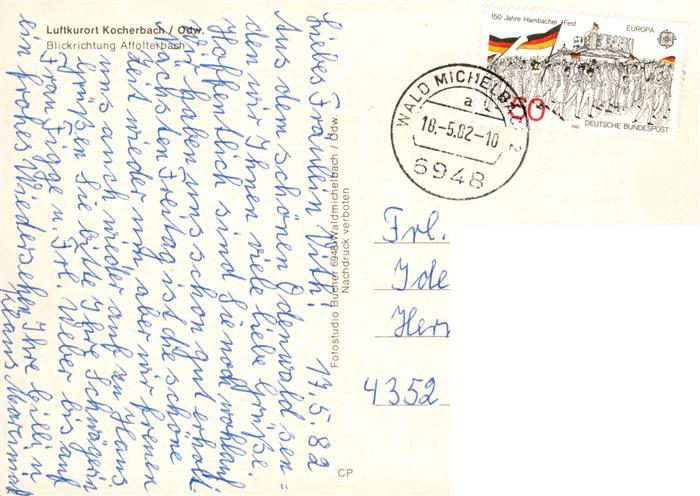 Luftkurort Kocherbach / Odw.
Blickrichtung Affolterbach
17.5.82
Liebes Fräulein Vith!
Aus dem schönen Odenwald sen=
den wir Ihnen viele liebe Grüße.
Hoffentlich sind Sie noch wohlauf
Wir haben uns schon gut erholt.
Nächsten Freitag ist die schöne
Zeit wieder um, aber wir freuen
uns auch wieder auf zu Haus
Grüßen Sie bitte Ihre Schwägerin
Frau Figge u. Frl. Weber bis auf
ein frohes Wiedersehen Ihre Cilli u
Klaus
Fotostudio Bucher 6948 Waldmichelbach / Odw.
Nachdruck verboten
CP
WALD-MICHELBACH 2
a
18.-5.82-10
6948
150 Jahre Hambacher Fest
EUROPA
CEPT
50
1982
DEUTSCHE BUNDESPOST
Frl.
Ide
Herr
4352